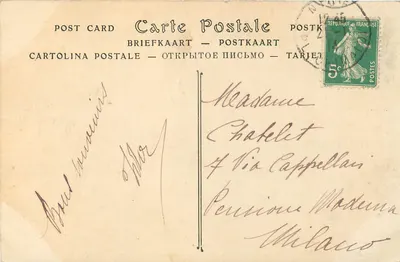 POST CARD Carte Postale POSTK
BRIEFKAART — POSTKAART
CARTOLINA POSTALE — ОТКРЫТОЕ ПИСЬМО — TARJET
5c
POSTES
Bons souvenirs
Madame
Chatelet
7 Via Cappellari
Pensione Moderna
Milano